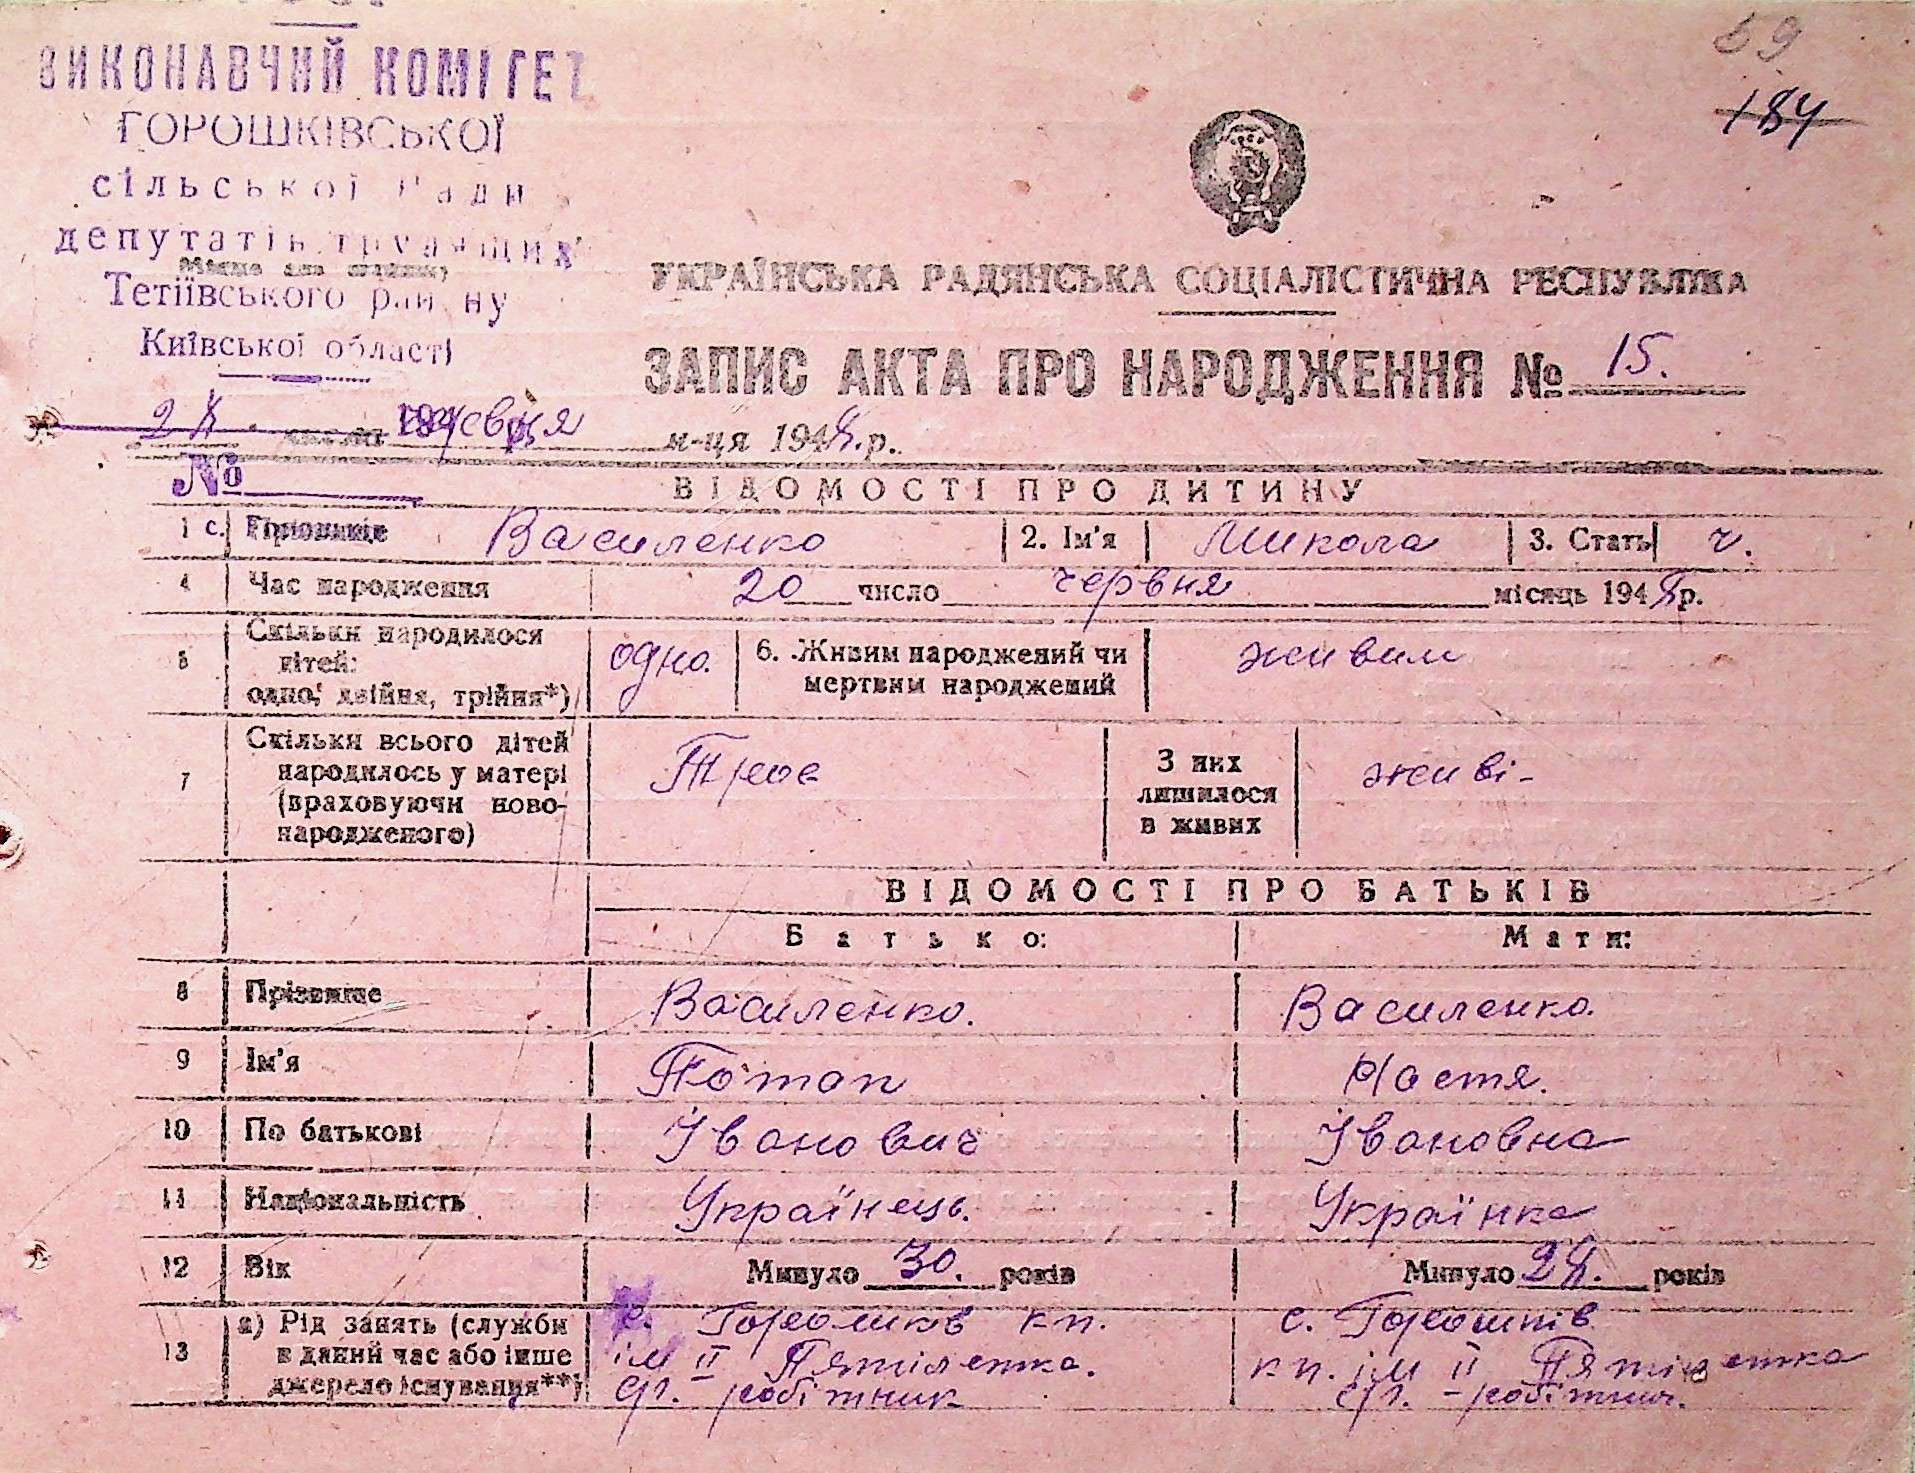 59
184
ВИКОНАВЧИЙ КОМІТЕТ
ГОРОШКІВСЬКОЇ
сільської Ради
депутатів трудящих
Тетіївського району
Київської області
УКРАЇНСЬКА РАДЯНСЬКА СОЦІАЛІСТИЧНА РЕСПУБЛІКА
ЗАПИС АКТА ПРО НАРОДЖЕННЯ № 15.
червня м-ця 1948.р.
№
ВІДОМОСТІ ПРО ДИТИНУ
1 Прізвище Василенко 2. Ім'я Микола 3. Стать ч.
4 Час народження 20 число червня місяць 1948 р.
5 Скільки народилося дітей: одно, двійня, трійня*) одно. 6. Живим народжений чи мертвим народжений живим
7 Скільки всього дітей народилось у матері (враховуючи новонародженого) Троє З них лишилося в живих живі-
ВІДОМОСТІ ПРО БАТЬКІВ
Батько: Мати:
8 Прізвище Василенко. Василенко.
9 Ім'я Потап Настя.
10 По батькові Іванович Івановна
11 Національність Українець. Українка
12 Вік Минуло 30. років Минуло 28. років
13 а) Рід занять (служби в даний час або інше джерело існування**) с. Горошків кп. ім ІІ Пятілетка. ср. робітник с. Горошків кп. ім ІІ Пятілетка ср. - робітниц.